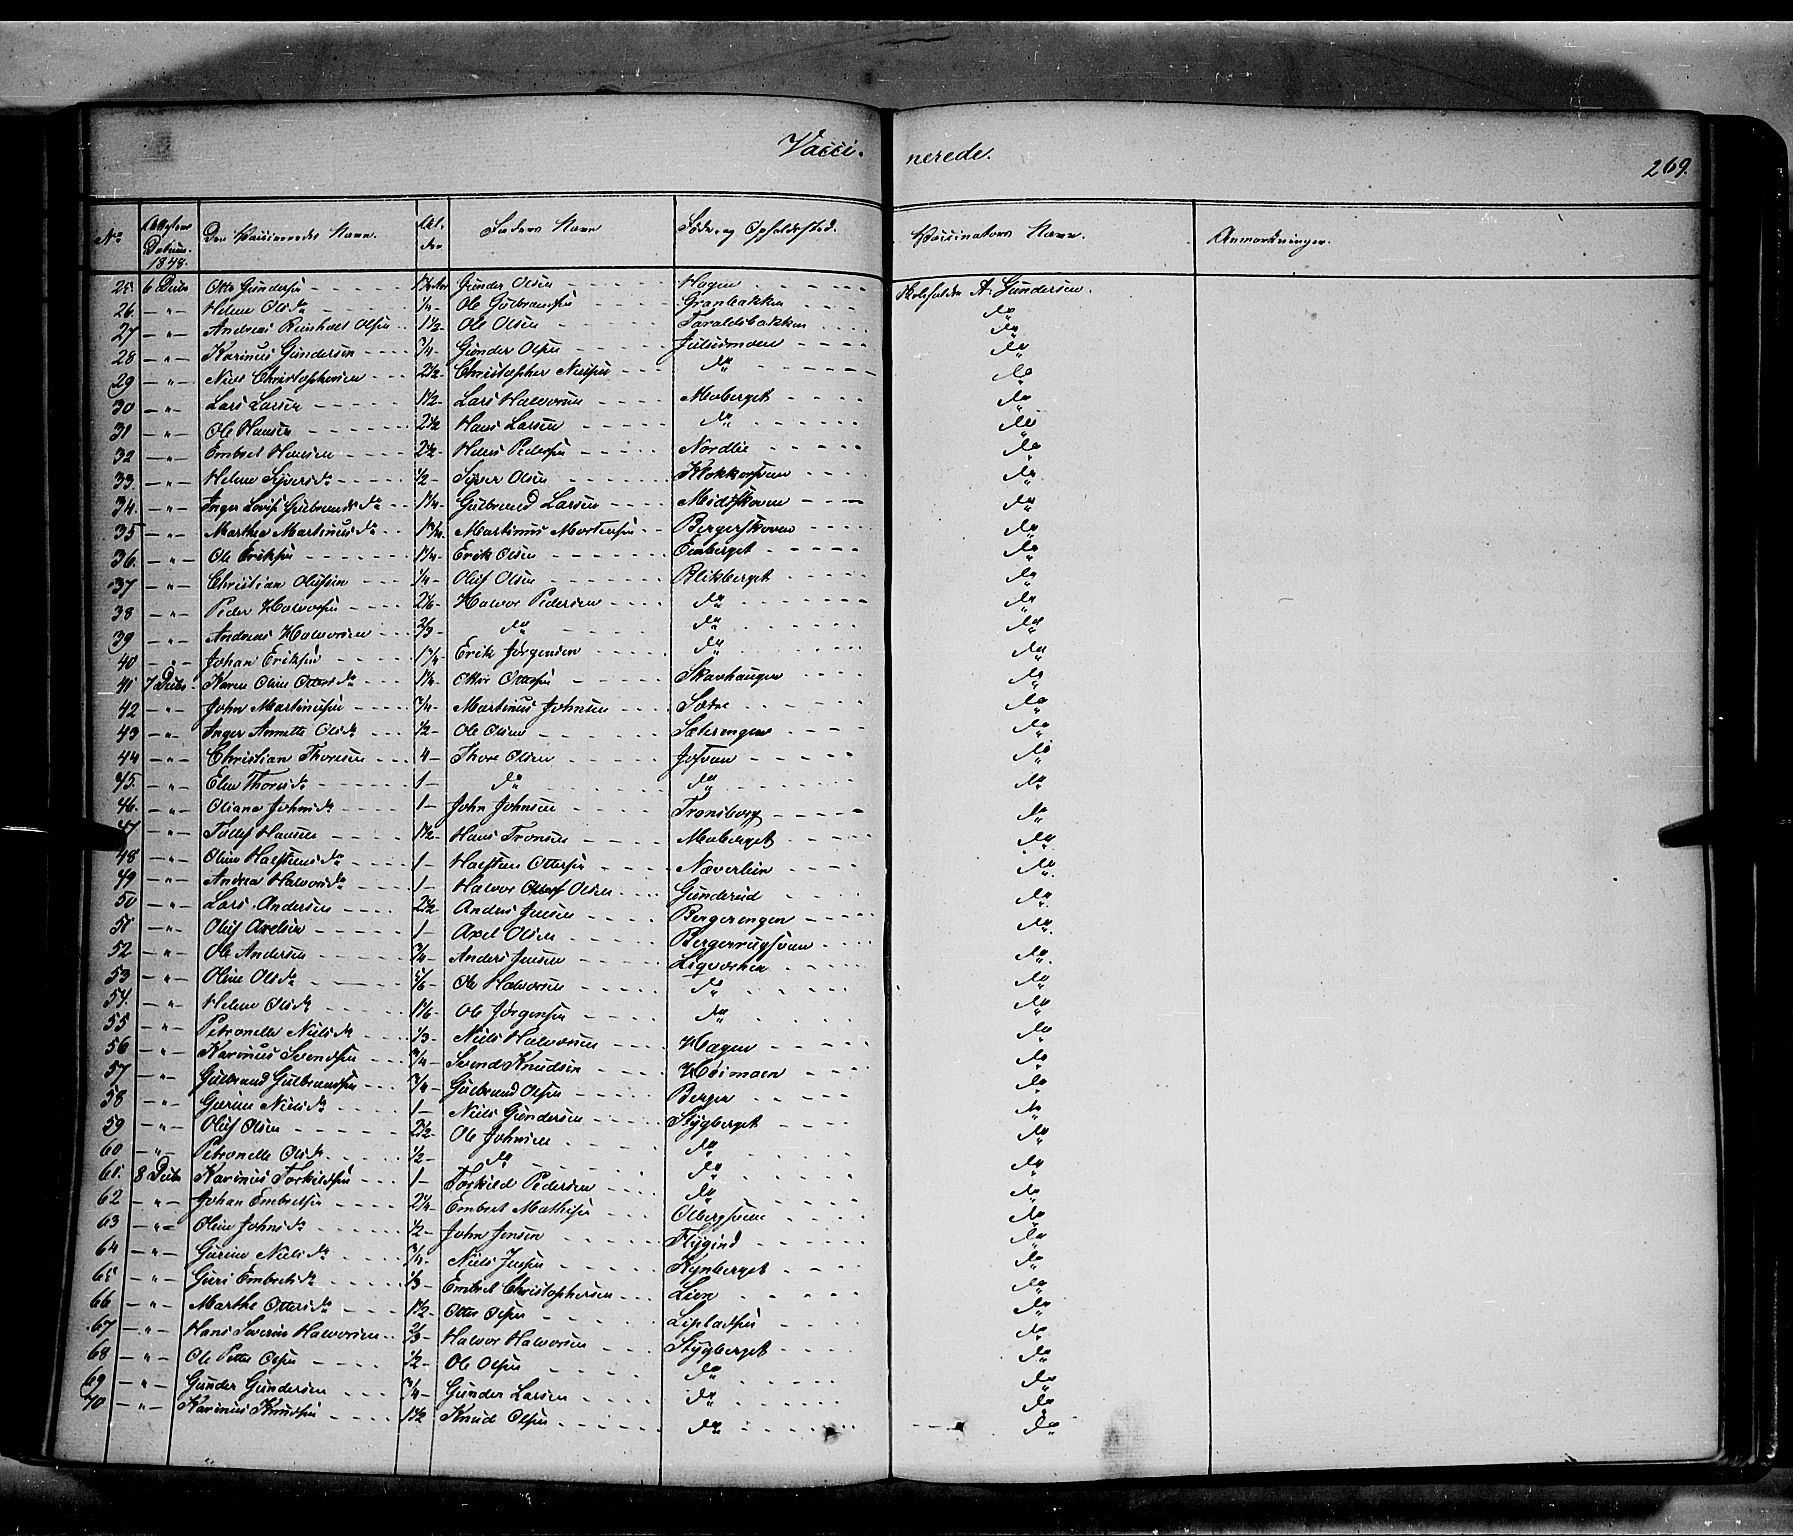 Vacci- nerede.
269.
No Attestens Datum 1848. Den Vaccineredes Navn. Alder Faders Navn Føde- og Opholdssted. Vaccinators Navn. Anmærkninger.
25 6 Decbr Otto Gundersen Gunder Olsen Hagen A. Gundersen
26 - " - Helene Olsdr 1/4 - Ole Gulbrandsen Granbakken do
27 - " - Andreas Reinholt Olsen 1 1/2 - Ole Olsen Taraldsbakken do
28 - " - Karinus Gundersen 3/4 - Gunder Olsen Juliusmoen do
29 - " - Niels Christophersen 2 1/2 - Christopher Nielsen do do
30 - " - Lars Larsen 1 1/2 - Lars Halvorsen Moberget do
31 - " - Ole Hansen 2 1/2 Hans Larsen do do
32 - " - Embret Hansen 2 1/2 - Hans Pedersen Nordlie do
33 - " - Helene Syversdr 1/2 - Syver Olsen Klokkersveen do
34 - " - Inger Lovise Gulbrandsdr 1 1/4 - Gulbrand Larsen Midtskoven do
35 - " - Marthea Martinusdr 1 3/4 - Martinus Mortensen Bergerskoven do
36 - " - Ole Eriksen 1 1/4 - Erik Olsen Emberget do
37 - " - Christian Olufsen 1/4 - Oluf Olsen Blikberget do
38 - " - Peder Halvorsen 2 1/6 - Halvor Pedersen do do
39 - " - Andreas Halvorsen 2/3 - do do do
40 - " - Johan Eriksen 1 3/4 - Erik Jørgensen do do
41 7 Decbr - Karen Oline Ottersdr 1 1/6 - Otter Ottersen Skavhaugen do
42 - " - John Martinusen 3/4 - Martinus Johnsen Sætre do
43 - " - Inger Annette Olsdr 1/2 - Ole Olsen Sæterengen do
44 - " - Christian Thoresen 4 - Thore Olsen do
45 - " - Elen Thoresdr 1 - do do do
46 - " - Oliana Johnsdr 1 - John Johnsen Tronsberg do
47 - " - Tollef Hansen 1 1/2 - Hans Tronsen Moberget do
48 - " - Oline Halstensdr 1 - Halsten Ottersen Næverlien do
49 - " - Andrea Halvorsdr 1 - Halvor Olsen Gunderud do
50 - " - Lars Andersen 2 1/2 - Anders Jensen Bergerengen do
51 - " - Oluf Axelsen 1 - Axel Olsen do
52 - " - Ole Andersen 3/4 - Anders Jensen do
53 - " - Oline Olsdr 5/6 - Ole Halvorsen do do
54 - " - Helene Olsdr 1 1/6 - Ole Jørgensen do do
55 - " - Petronelle Nielsdr 1/3 - Niels Halvorsen Hagen do
56 - " - Karinus Svendsen 3/4 - Svend Knudsen Høimoen do
57 - " - Gulbrand Gulbrandsen 3/4 - Gulbrand Olsen Berger do
58 - " - Gurine Nielsdr 1 - Niels Gundersen Stygberget do
59 - " - Oluf Olsen 2 1/2 - Ole Johnsen do do
60 - " - Petronelle Olsdr 1/2 - do do do
61. 8 Decbr Karinus Torkildsen 1 - Torkild Pedersen do do
62 - " - Johan Embretsen 2 1/4 - Embret Mathisen Olbergsveen do
63 - " - Oline Johnsdr 1/2 - John Jensen Flygind do
64 - " - Gurine Nielsdr 3/4 - Niels Jensen Kynberget do
65 - " - Guri Embretsdr 1/3 - Embret Christophersen Lien do
66 - " - Marthe Ottersdr 1 1/2 - Otter Olsen do
67 - " - Hans Severin Halvorsen 2/3 - Halvor Halvorsen Stygberget do
68 - " - Ole Petter Olsen 1/2 - Ole Olsen do do
69 - " - Gunder Gundersen 3/4 - Gunder Larsen do do
70 - " - Karinus Knudsen 1 1/2 - Knud Olsen do do